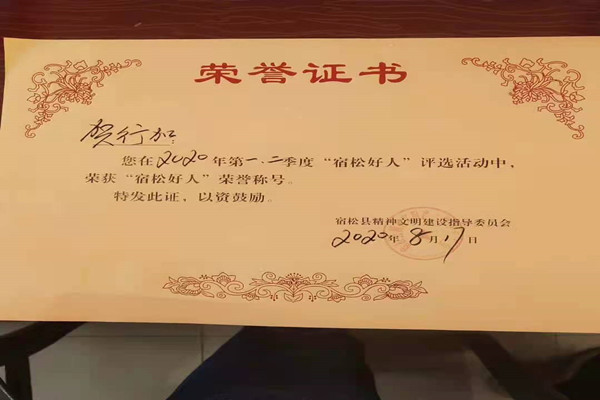 荣誉证书
贺行加：
您在2020年第一.二季度“宿松好人”评选活动中，
荣获“宿松好人”荣誉称号。
特发此证，以资鼓励。
宿松县精神文明建设指导委员会
2020年8月17日